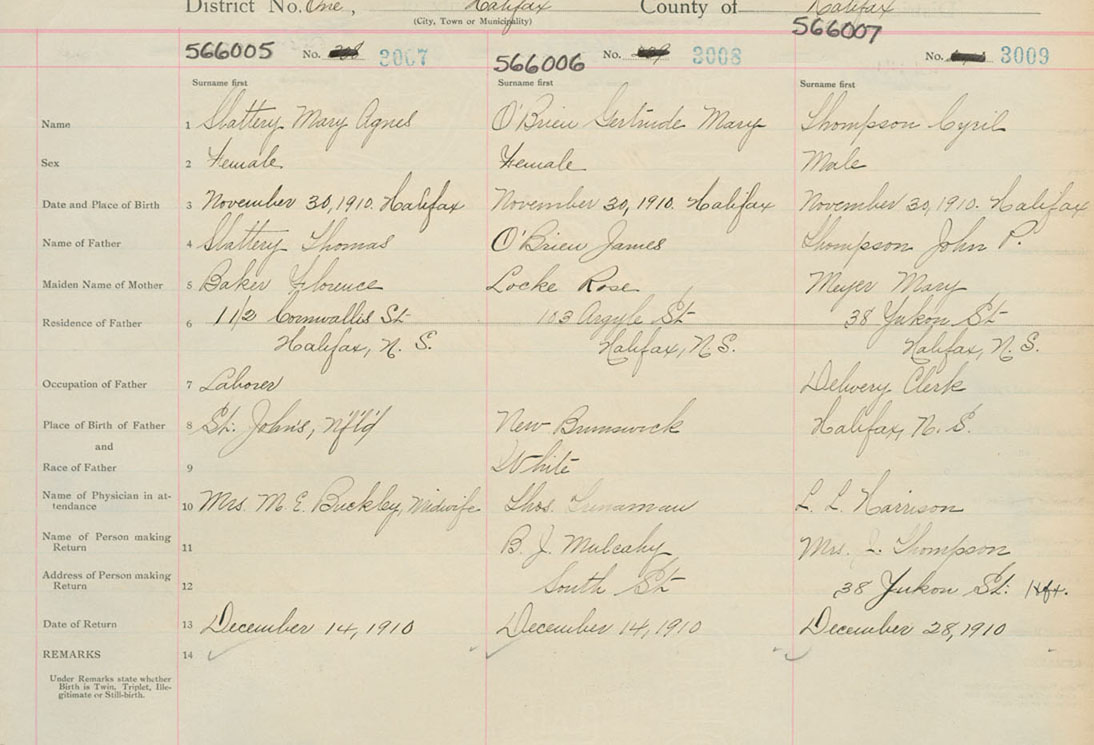 District No. One, Halifax County of Halifax
(City, Town or Municipality)
566005 No. 3007 566006 No. 3008 566007 No. 3009
Surname first Surname first Surname first
Name 1 Slattery Mary Agnes O'Brien Gertrude Mary Thompson Cyril
Sex 2 Female Female Male
Date and Place of Birth 3 November 30, 1910. Halifax November 30, 1910. Halifax November 30, 1910. Halifax
Name of Father 4 Slattery Thomas O'Brien James Thompson John P.
Maiden Name of Mother 5 Baker Florence Locke Rose Meyer Mary
Residence of Father 6 112 Cornwallis St 103 Argyle St 38 Yukon St
Halifax, N. S. Halifax, N. S. Halifax, N. S.
Occupation of Father 7 Laborer Delivery Clerk
Place of Birth of Father 8 St. John's, Nf'l'd New Brunswick Halifax, N. S.
and
Race of Father 9 White
Name of Physician in at-
tendance 10 Mrs. M. E. Buckley, Midwife Thos. L. L. Harrison
Name of Person making
Return 11 B. J. Mulcahy Mrs. Thompson
Address of Person making
Return 12 South St 38 Yukon St. Hfx.
Date of Return 13 December 14, 1910 December 14, 1910 December 28, 1910
REMARKS 14
Under Remarks state whether
Birth is Twin, Triplet, Ille-
gitimate or Still-birth.